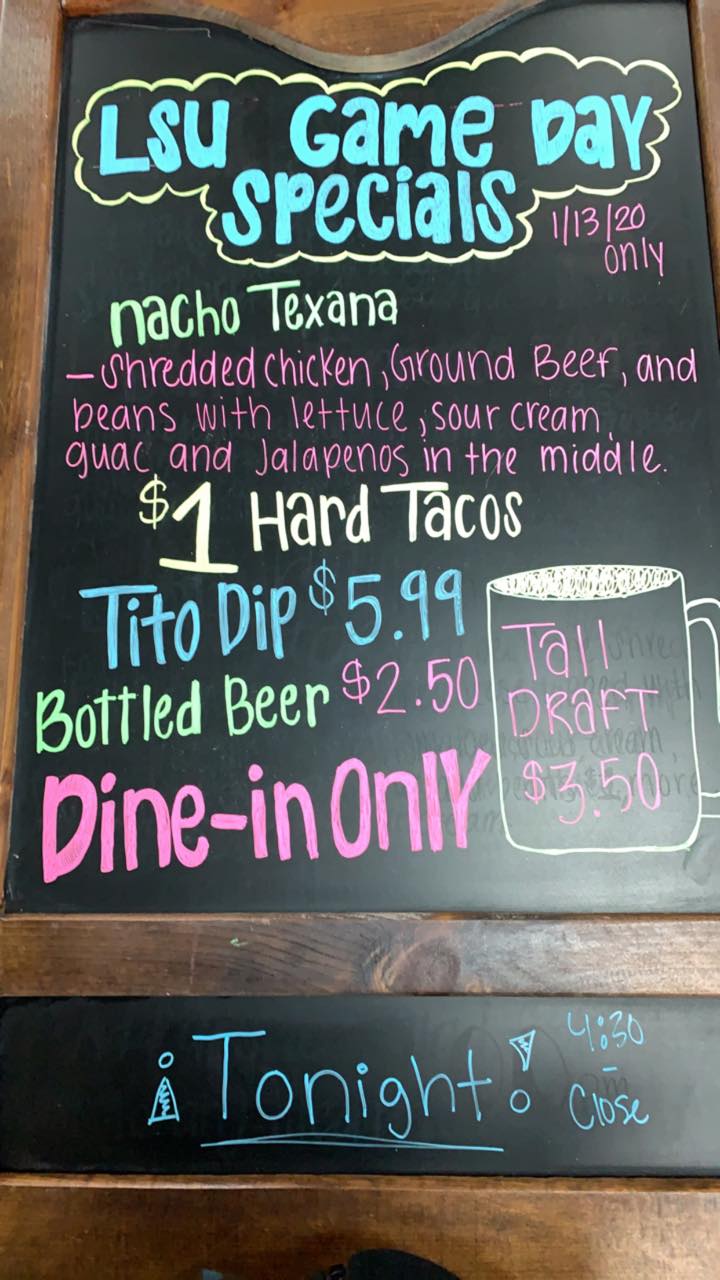 LSU Game Day
Specials
1/13/20
only
nacho Texana
- Shredded chicken, Ground Beef, and
beans with lettuce, sour cream,
guac and Jalapenos in the middle.
$1 Hard Tacos
Tito Dip $5.99
Bottled Beer $2.50
Tall
DRAFT
$3.50
Dine-in Only
¡Tonight!
4:30
-
Close